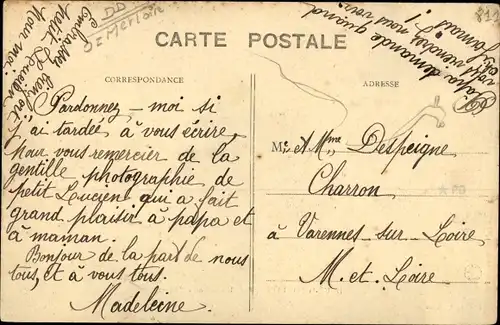 CARTE POSTALE
CORRESPONDANCE
ADRESSE
Pardonnez-moi si
j'ai tardée à vous écrire,
Pour vous remercier de la
gentille photographie de
petit Loucient qui a fait
grand plaisir à papa et
à maman.
Bonjour de la part de nous
tous, et à vous tous.
Madeleine.
Mr et Mme Despeigne
Charron
à Varennes-sur-Loire
M.-et-Loire
Embrassez bien fort
petit
Pour moi.
Papa demande quand
nous voir